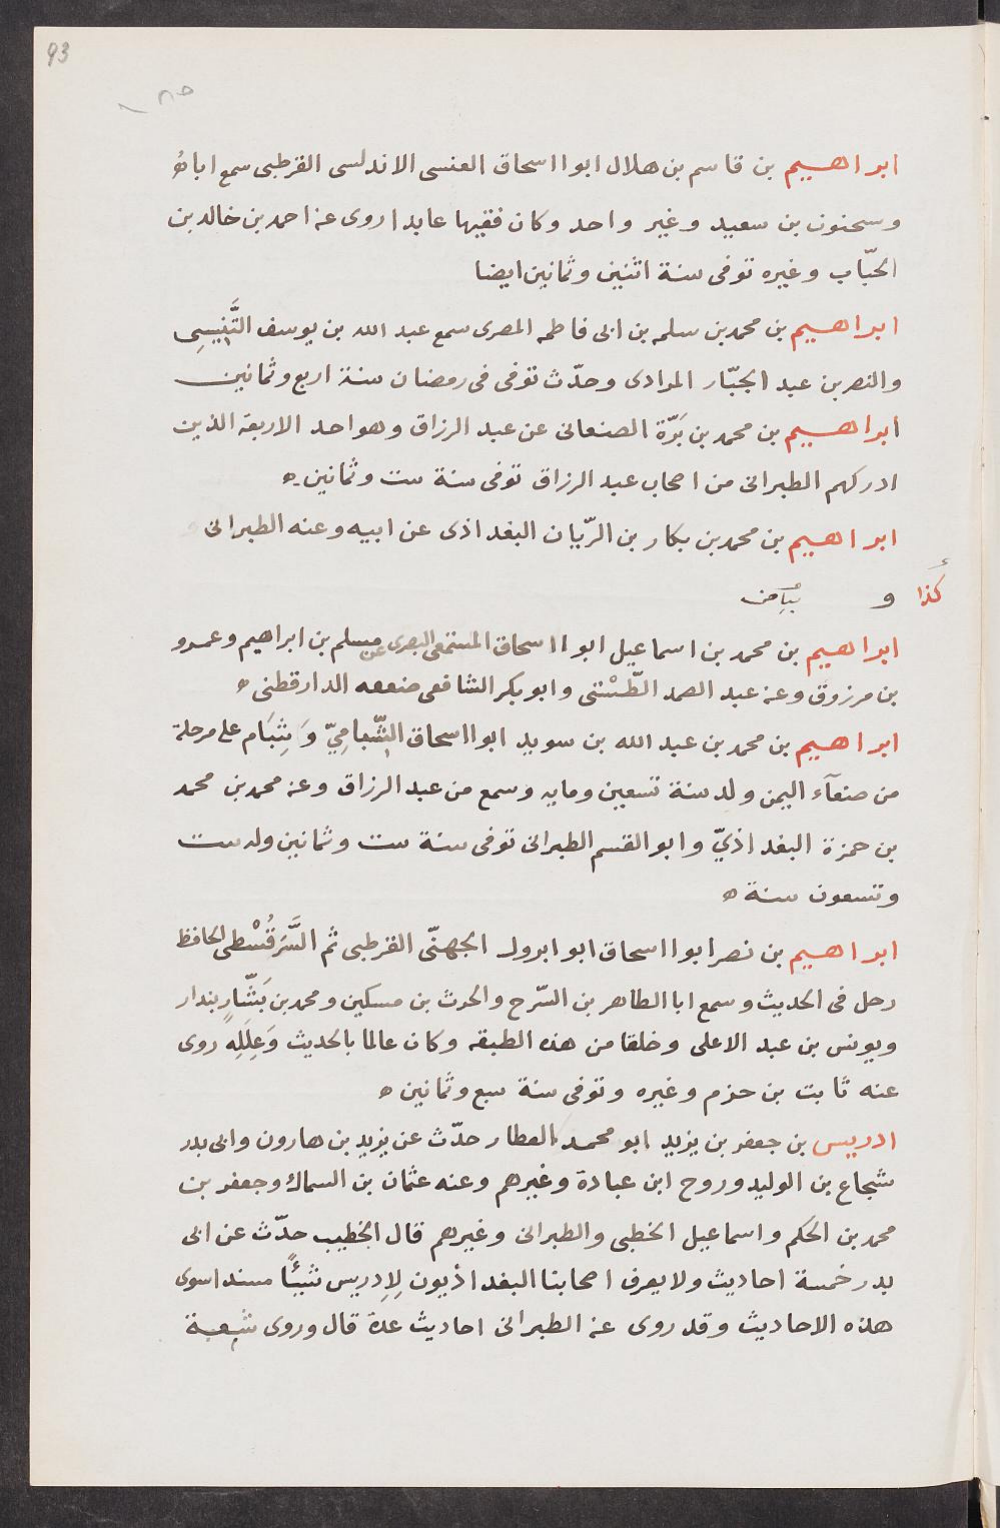 93
ابراهيم بن قاسم بن هلال ابو ااسحاق العنسى الاندلسى القرطبى سمع اباه
وسحنون بن سعيد وغير واحد وكان فقيها عابدا روى عنه احمد بن خالد بن
الحبّاب وغيره توفى سنة اثنين وثمانين ايضا
ابراهيم بن محمد بن سلمه بن ابى فاطمه المصرى سمع عبد الله بن يوسف التِّنِّيسِى
والنصر بن عبد الجبّار المرادى وحدّث توفى فى رمضان سنة اربع وثمانين
ابراهيم بن محمد بن بَرّة الصنعانى عن عبد الرزاق وهو احد الاربعة الذين
ادركهم الطبرانى من اصحاب عبد الرزاق توفى سنة ست وثمانين ه
ابراهيم بن محمد بن بكار بن الرّيان البغداذى عن ابيه وعنه الطبرانى
كذا و بياض
ابراهيم بن محمد بن اسماعيل ابو ااسحاق المسمعى البصرى عن مسلم بن ابراهيم وعمرو
بن مرزوق وعنه عبد الصمد الطّسْتى وابو بكر الشافعى ضعفه الدارقطنى ه
ابراهيم بن محمد بن عبد الله بن سويد ابو ااسحاق الشِّبامِيّ وَشِبَام على مرحلة
من صنعآء اليمن ولد سنة تسعين ومايه وسمع من عبد الرزاق وعنه محمد بن محمد
بن حمزة البغداذيّ وابو القسم الطبرانى توفى سنة ست وثمانين وله ست
وتسعون سنة ه
ابراهيم بن نصر ابو ااسحاق ابو ابرول الجهنّى القرطبى ثم السَّرَقُسْطى الحافظ
رحل فى الحديث وسمع ابا الطاهر بن السّرح والحرث بن مسكين ومحمد بن بَشّارٍ بندار
ويونس بن عبد الاعلى وخلقا من هذه الطبقه وكان عالما بالحديث وَعِلَلِه روى
عنه ثابت بن حزم وغيره وتوفى سنة سبع وثمانين ه
ادريس بن جعفر بن يزيد ابو محمد العطار حدّث عن يزيد بن هارون وابى بدر
شجاع بن الوليد وروح ابن عبادة وغيرهم وعنه عثمان بن السماك وجعفر بن
محمد بن الحكم واسماعيل الخطبى والطبرانى وغيرهم قال الخطيب حدّث عن ابى
بدر خمسة احاديث ولا يعرف اصحابنا البغداذيون لِإدريس شيئًا مسندا سوى
هذه الاحاديث وقد روى عنه الطبرانى احاديث عدة قال وروى شعبة